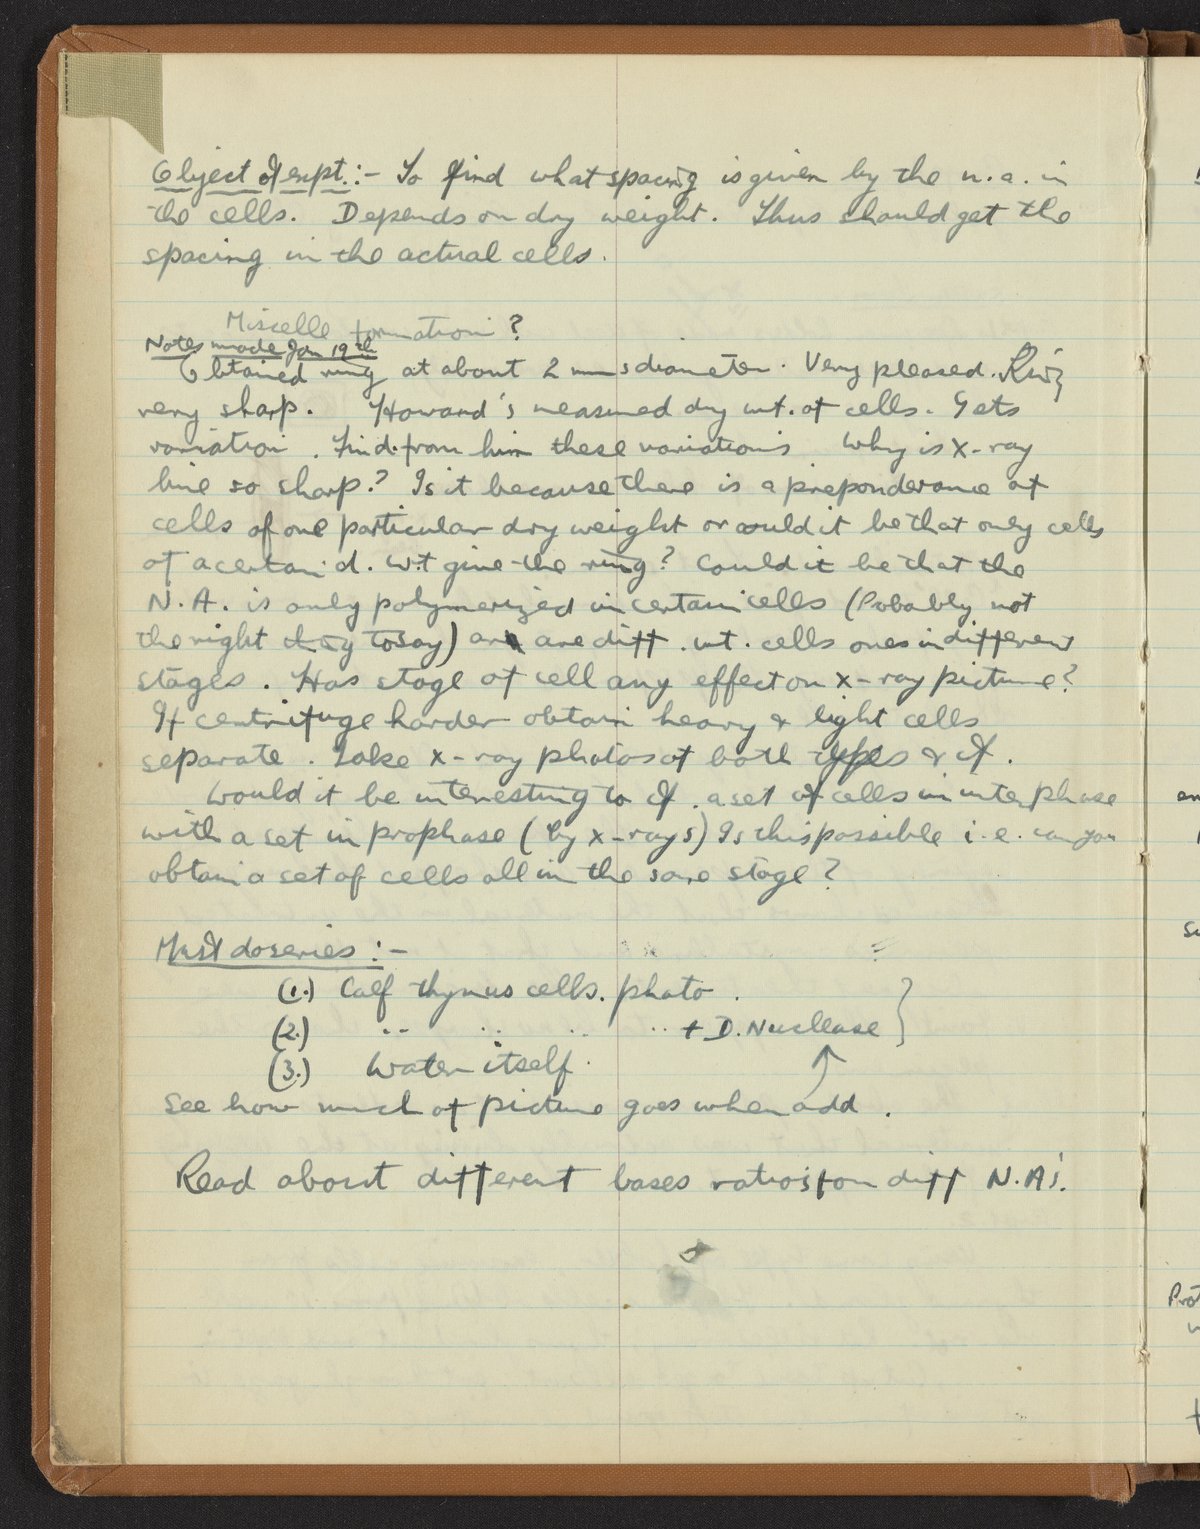 Object of expt.:- To find what spacing is given by the n.a. in
the cells. Depends on dry weight. Thus should get the
spacing in the actual cells.
Miscelle formation?
Notes made Jan 19th
Obtained ring at about 2 mms diameter. Very pleased. Ring
very sharp. Howard's measured dry wt. of cells. Gets
variation. Find from him these variations Why is X-ray
line so sharp? Is it because there is a preponderance of
cells of one particular dry weight or could it be that only cells
of a certain d. wt give the ring? Could it be that the
N.A. is only polymerized in certain cells (Probably not
the right thing to say) are diff. wt. cells ones in different
stages. Has stage of cell any effect on X-ray picture?
If centrifuge harder obtain heavy & light cells
separate. Take X-ray photos of both types & cf.
Would it be interesting to cf. a set of cells in interphase
with a set in prophase (by X-rays) Is this possible i.e. can you
obtain a set of cells all in the same stage?
Must do series:-
(1.) Calf thymus cells. photo.
(2.) .. .. .. .. + D. Nuclease }
(3.) Water itself.
See how much of picture goes when add.
Read about different bases ratios for diff N.A's.